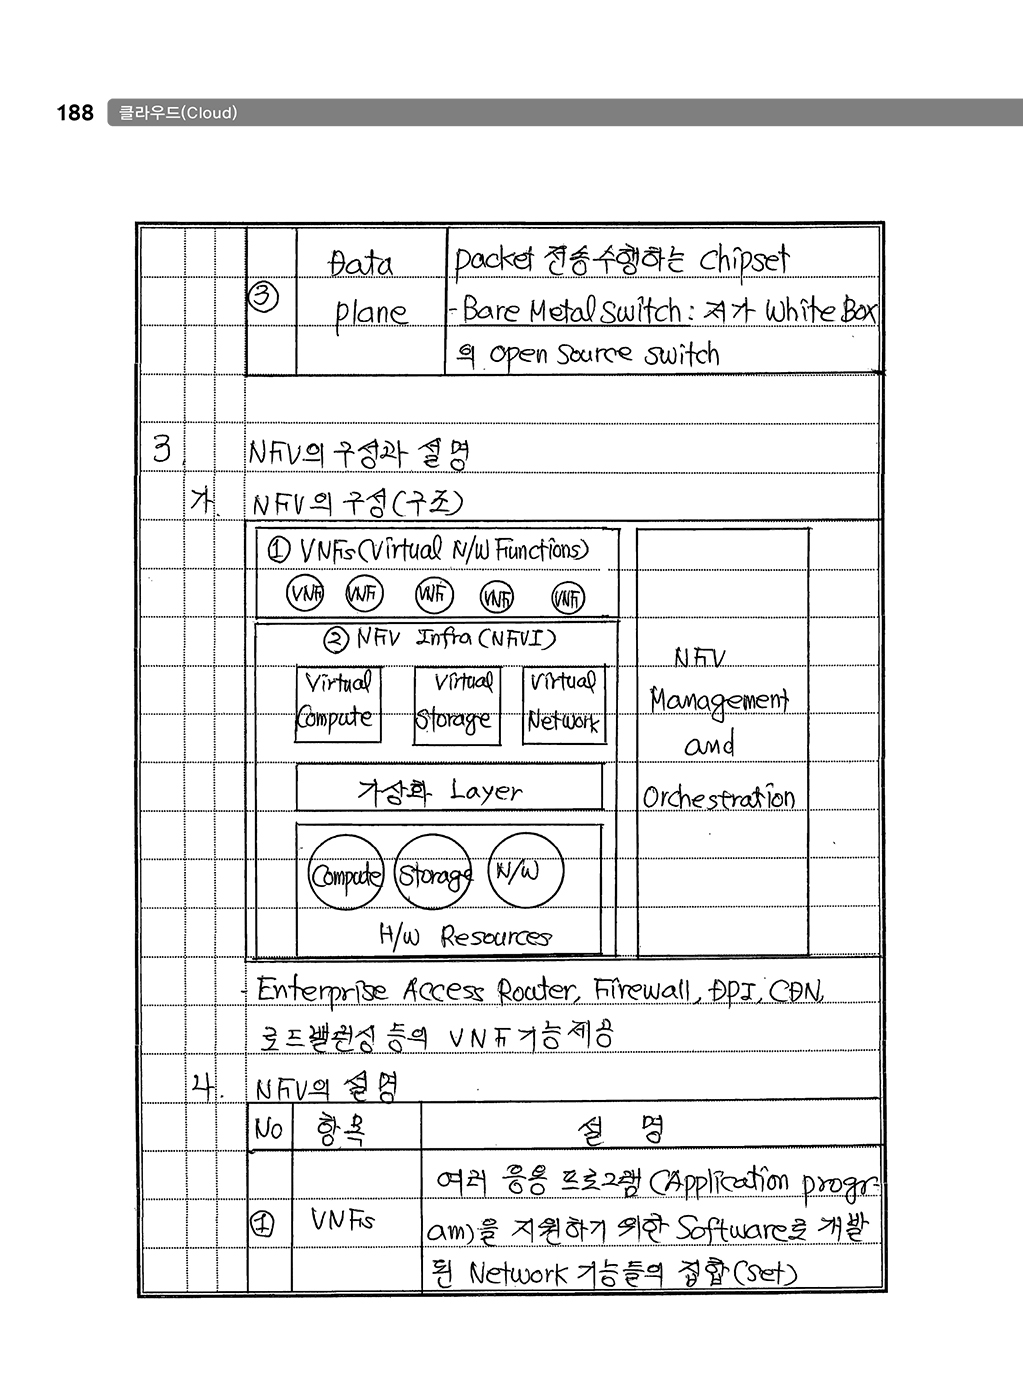 188 클라우드(Cloud)
③ Data plane packet 전송수행하는 chipset
- Bare Metal Switch : 저가 White Box
의 open source switch
3. NFV의 구성과 설명
가. NFV의 구성(구조)
① VNFs(Virtual N/W Functions)
VNF VNF VNF VNF VNF
② NFV Infra(NFVI)
Virtual Compute
Virtual Storage
Virtual Network
가상화 Layer
Compute Storage N/W
H/W Resources
NFV
Management
and
Orchestration
- Enterprise Access Router, Firewall, DPI, CDN,
로드밸런싱 등의 VNF 기능 제공
나. NFV의 설명
No 항목 설 명
① VNFs
여러 응용 프로그램(Application progr-
am)을 지원하기 위한 Software로 개발
된 Network 기능들의 집합(Set)